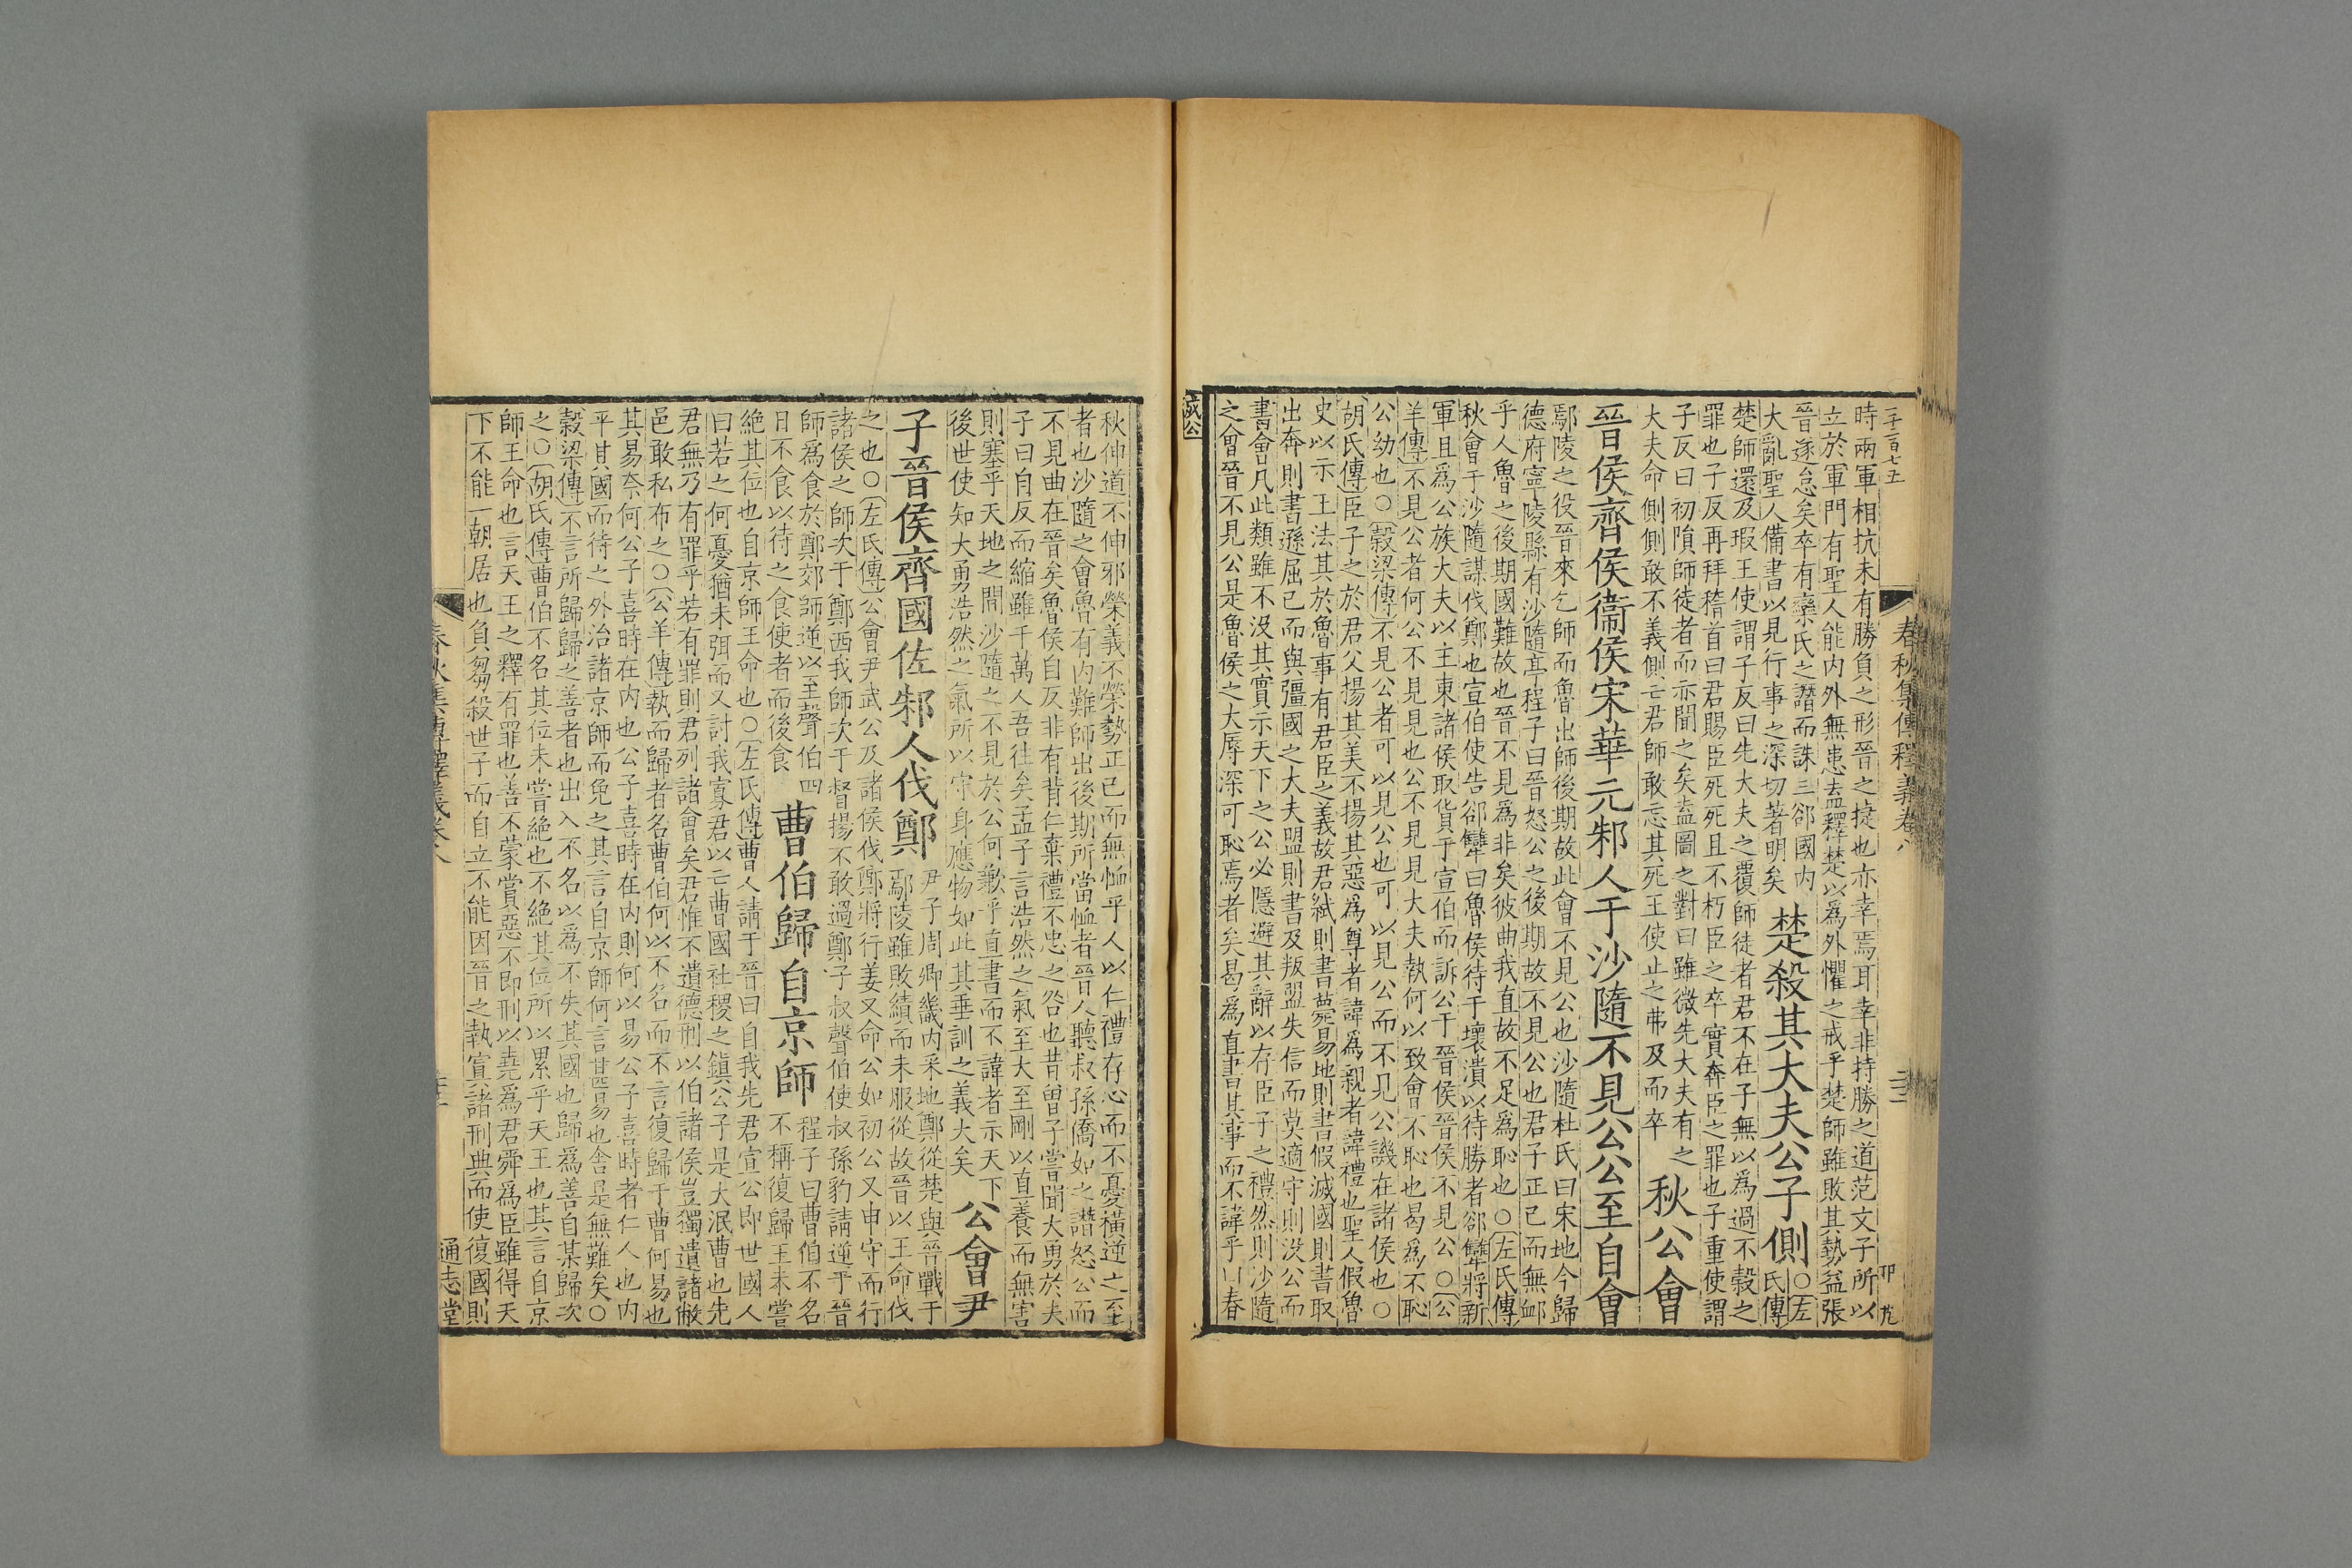 時兩軍相抗未有勝負之形晉之捷也亦幸焉耳幸非持勝之道范文子所以
立於軍門有聖人能內外無患盍釋楚以為外懼之戒乎楚師雖敗其勢益張
晉遂怠矣卒有欒氏之譖而誅三郤國內
大亂聖人備書以見行事之深切著明矣
楚殺其大夫公子側
○左
氏傳
楚師還及瑕王使謂子反曰先大夫之覆師徒者君不在子無以為過不穀之
罪也子反再拜稽首曰君賜臣死死且不朽臣之卒實奔臣之罪也子重使謂
子反曰初隕師徒者而亦聞之矣盍圖之對曰雖微先大夫有之
大夫命側側敢不義側亡君師敢忘其死王使止之弗及而卒
秋公會
晉侯齊侯衞侯宋華元邾人于沙隨不見公公至自會
鄢陵之役晉來乞師而魯出師後期故此會不見公也沙隨杜氏曰宋地今歸
德府寧陵縣有沙隨亭程子曰晉怒公之後期故不見公也君子正己而無䘏
乎人魯之後期國難故也晉不見為非矣彼曲我直故不足為恥也○左氏傳
秋會于沙隨謀伐鄭也宣伯使告郤犫曰魯侯待于壞隤以待勝者郤犫將新
軍且為公族大夫以主東諸侯取貨于宣伯而訴公于晉侯晉侯不見公○公
羊傳不見公者何公不見見也公不見見大夫執何以致會不恥也曷為不恥
公幼也○穀梁傳不見公者可以見公也可以見公而不見公譏在諸侯也○
胡氏傳臣子之於君父揚其美不揚其惡為尊者諱為親者諱禮也聖人假魯
史以示王法其於魯事有君臣之義故君弒則書薨易地則書假滅國則書取
出奔則書遜屈己而與彊國之大夫盟則書及叛盟失信而莫適守則沒公而
書會凡此類雖不沒其實示天下之公必隱避其辭以存臣子之禮然則沙隨
之會晉不見公是魯侯之大辱深可恥焉者矣曷為直書其事而不諱乎曰春
成公
秋伸道不伸邪榮義不榮勢正己而無恤乎人以仁禮存心而不憂橫逆之至
者也沙隨之會魯有內難師出後期所當恤者晉人聽叔孫僑如之譖怒公而
不見曲在晉矣魯侯自反非有背仁棄禮不忠之咎也昔曾子嘗聞大勇於夫
子曰自反而縮雖千萬人吾往矣孟子言浩然之氣至大至剛以直養而無害
則塞乎天地之間沙隨之不見於公何歉乎直書而不諱者示天下
後世使知大勇浩然之氣所以守身應物如此其垂訓之義大矣
公會尹
子晉侯齊國佐邾人伐鄭
尹子周卿畿內采地鄭從楚與晉戰于
鄢陵雖敗績而未服從故晉以王命伐
之也○左氏傳公會尹武公及諸侯伐鄭將行姜又命公如初公又申守而行
諸侯之師次于鄭西我師次于督揚不敢過鄭子叔聲伯使叔孫豹請逆于晉
師為食於鄭郊師逆以至聲伯四
日不食以待之食使者而後食
曹伯歸自京師
程子曰曹伯不名
不稱復歸王未嘗
絕其位也自京師王命也○左氏傳曹人請于晉曰自我先君宣公即世國人
曰若之何憂猶未弭而又討我寡君以亡曹國社稷之鎮公子是大泯曹也先
君無乃有罪乎若有罪則君列諸會矣君惟不遺德刑以伯諸侯豈獨遺諸敝
邑敢私布之○公羊傳執而歸者名曹伯何以不名而不言復歸于曹何易也
其易奈何公子喜時在內也公子喜時在內則何以易公子喜時者仁人也內
平其國而待之外治諸京師而免之其言自京師何言甚易也舍是無難矣○
穀梁傳不言所歸歸之善者也出入不名以為不失其國也歸為善自某歸次
之○胡氏傳曹伯不名其位未嘗絕也不絕其位所以累乎天王也其言自京
師王命也言天王之釋有罪也善不蒙賞惡不即刑以堯為君舜為臣雖得天
下不能一朝居也負芻殺世子而自立不能因晉之執寘諸刑典而使復國則
春秋集傳釋義卷八
通志堂